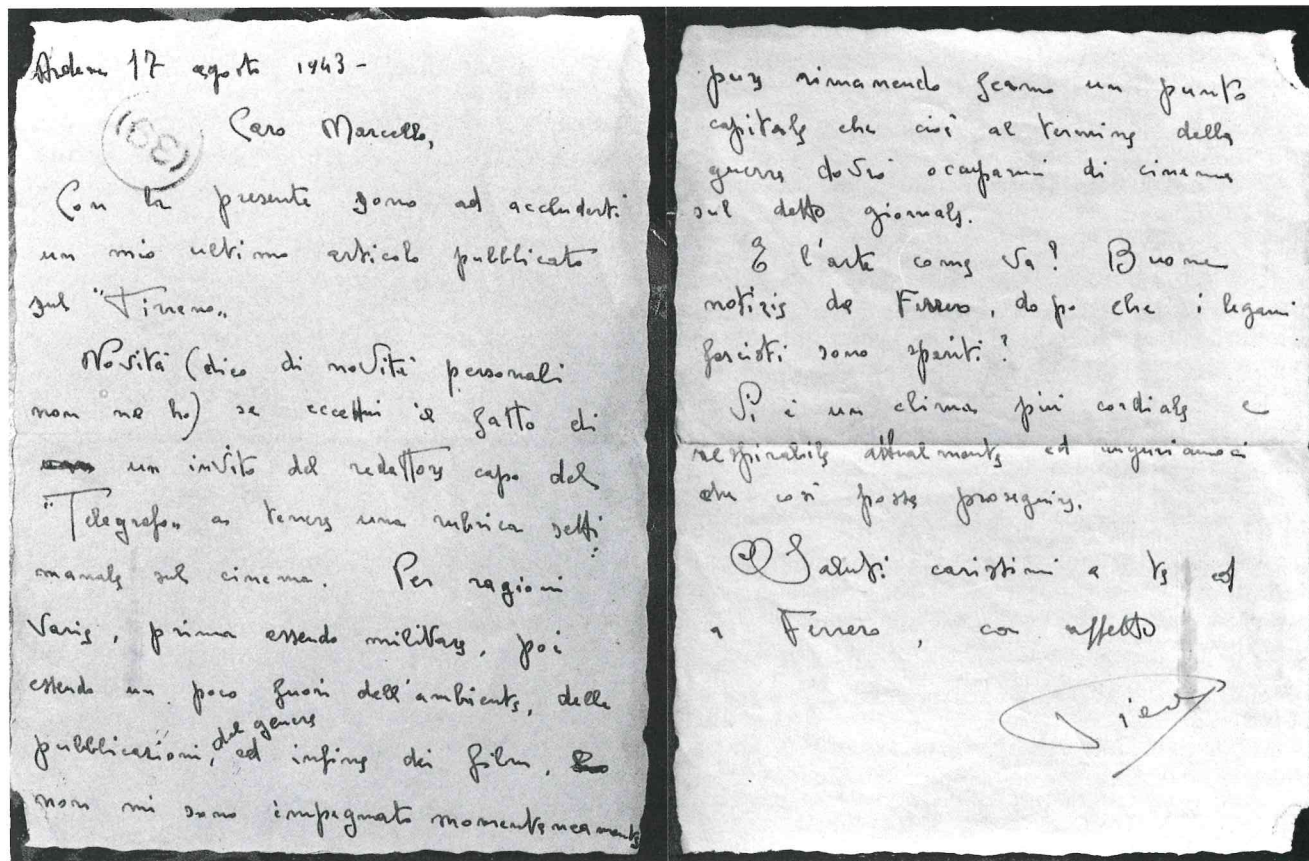 17 agosto 1943 -
(391)
Caro Marcello,
Con la presente sono ad accluderti
un mio ultimo articolo pubblicato
sul "Tirreno„
Novità (dico di novità personali
non ne ho) se eccettui il fatto di
un invito del redattore capo del
"Telegrafo„ a tenere una rubrica setti
manale sul cinema. Per ragioni
varie, prima essendo militare, poi
essendo un poco fuori dell'ambiente, delle
pubblicazioni, del genere ed infine dei film,
non mi sono impegnato momentaneamente
pur rimanendo fermo un punto
capitale che cioè al termine della
guerra dovrò occuparmi di cinema
sul detto giornale.
E l'arte come va? Buone
notizie da Ferrero, dopo che i legami
fascisti sono spariti?
Vi è un clima più cordiale e
respirabile attualmente ed auguriamoci
che così possa proseguire.
Saluti carissimi a te ed
a Ferrero, con affetto